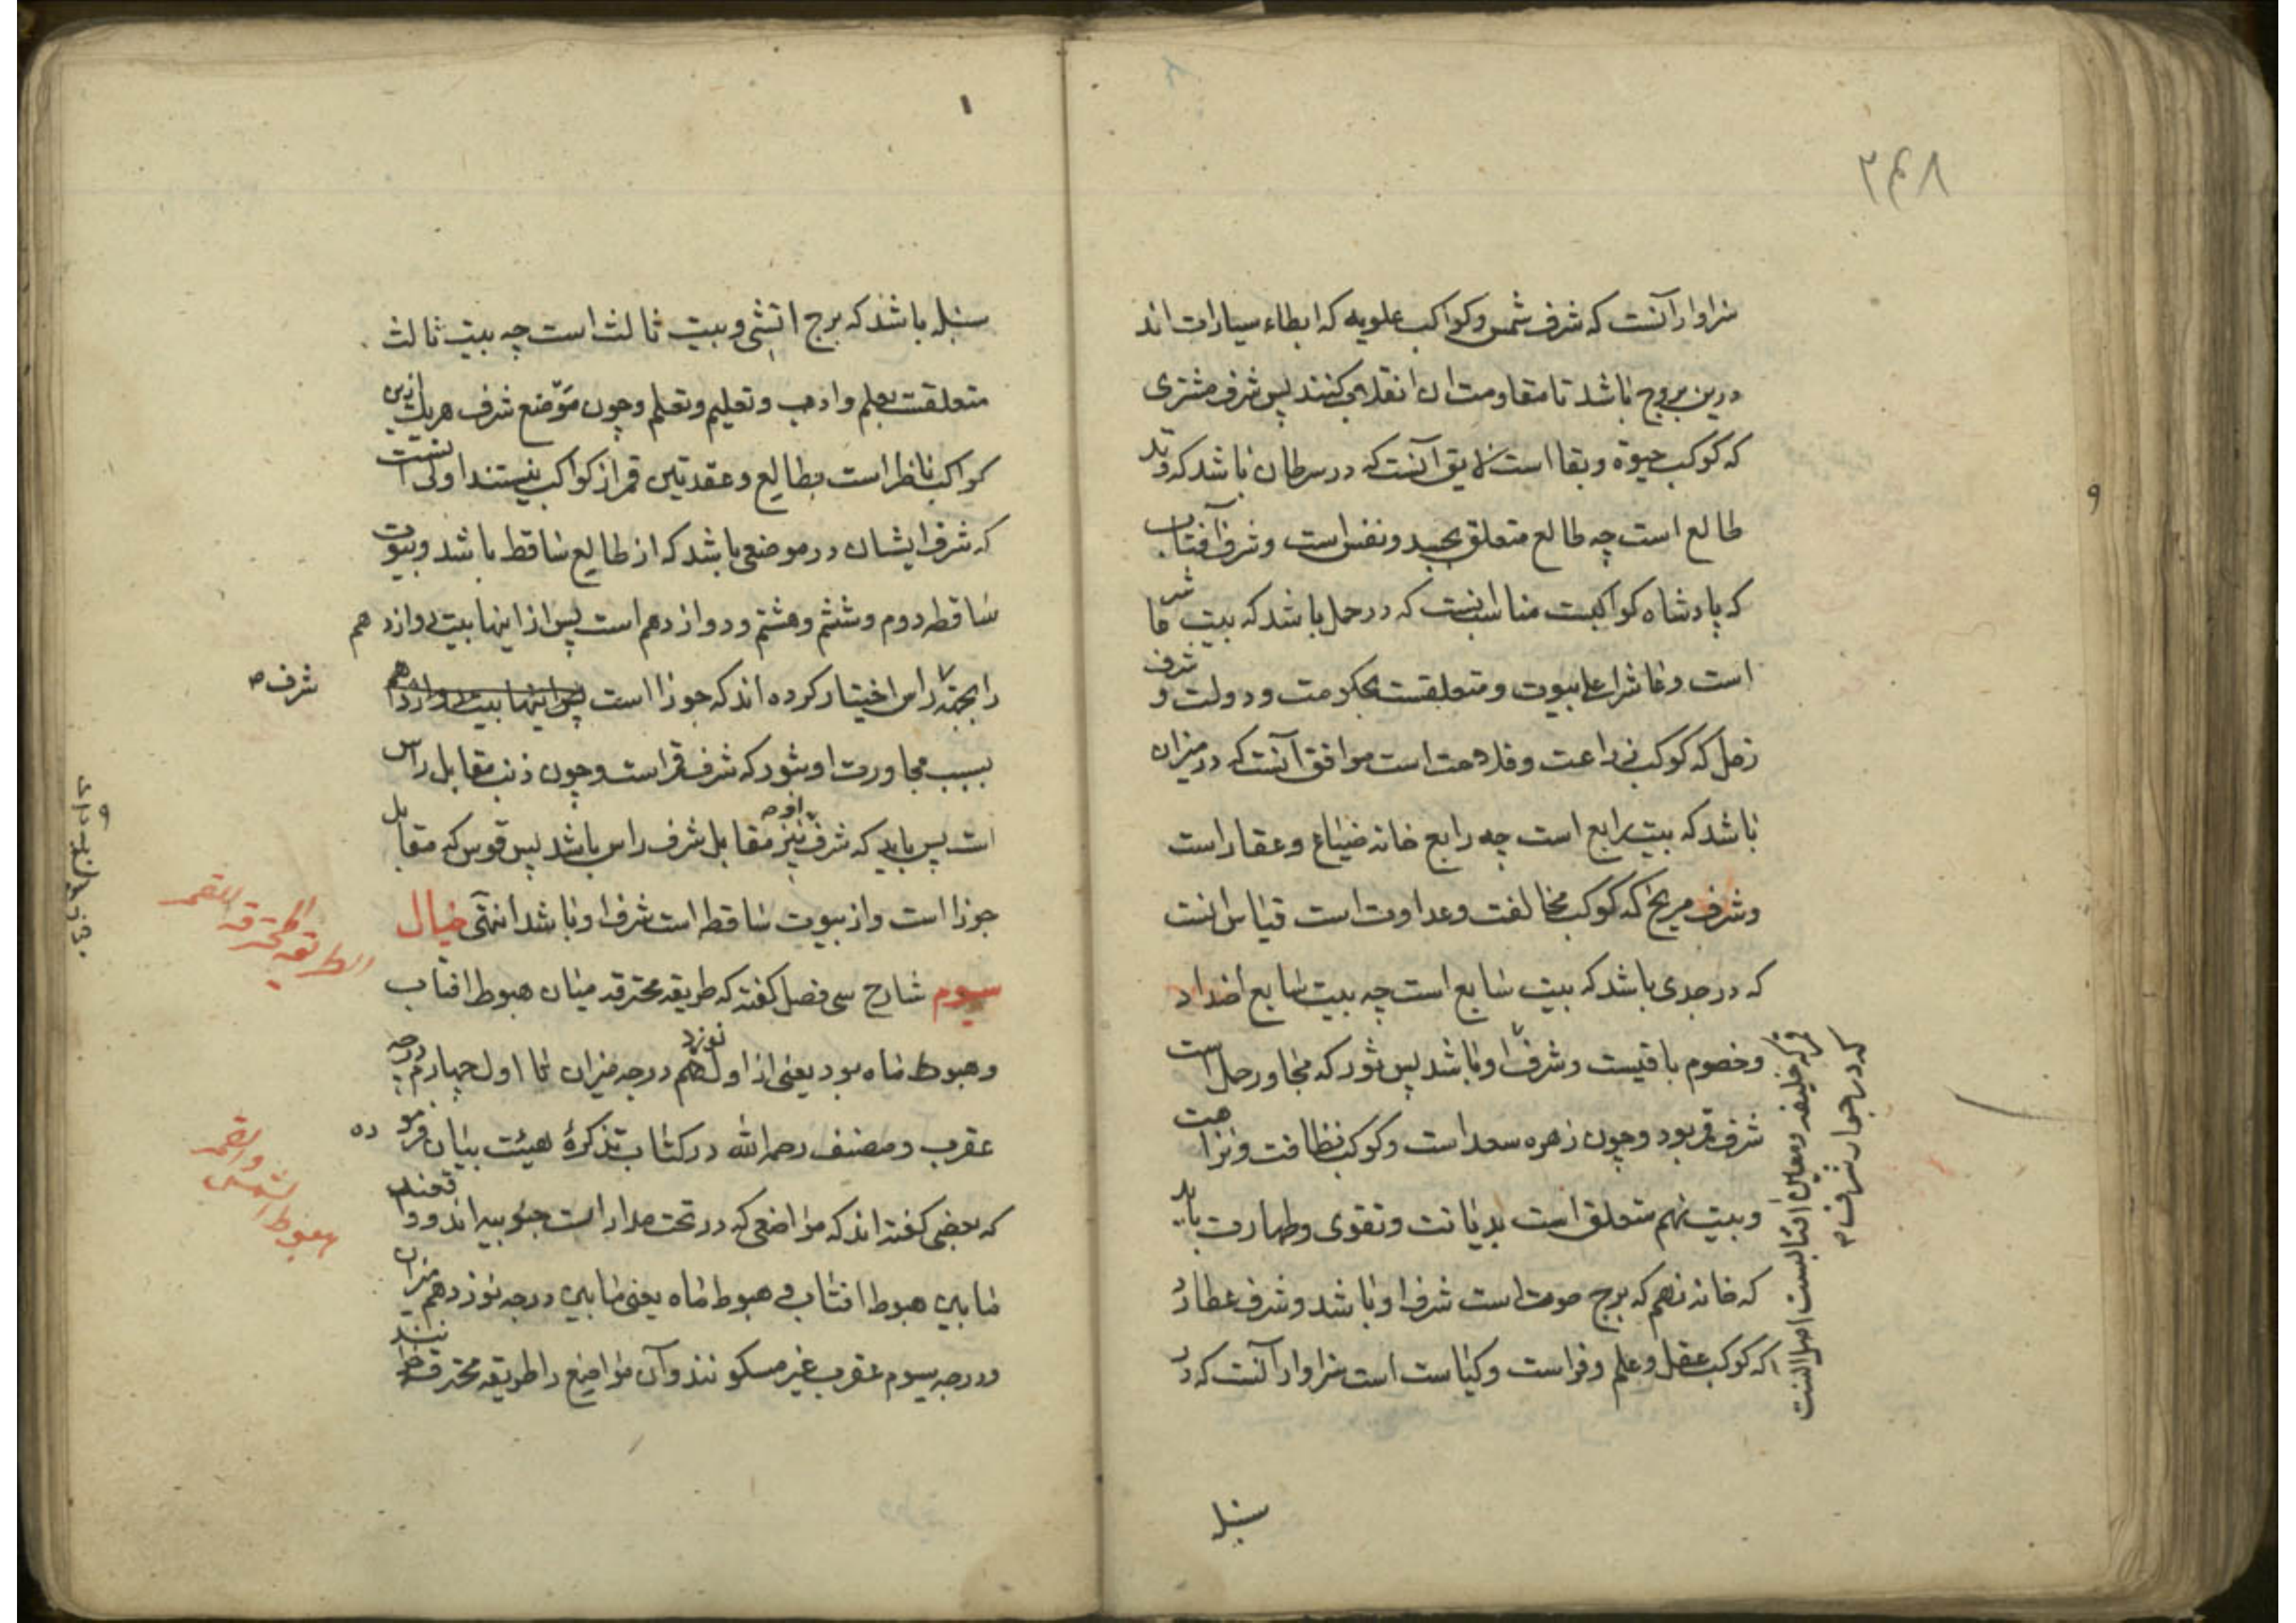 ۲۴۸
سزاوار آنست که شرف شمس و کواکب علویه که ابطاء سیارات اند
درین بروج باشد تا مقاومت ان انقلاب کنند پس شرف مشتری
که کوکب حیوة و بقا است لایق آنست که در سرطان باشد که وتد
طالع است چه طالع متعلق بجسد و نفس است و شرف آفتاب
که پادشاه کواکبست مناسب انست که در حمل باشد که بیت عاشر
است و عاشر اعلی بیوت و متعلقست بحکومت و دولت و شرف
زحل که کوکب زراعت و فلاحت است موافق آنست که در میزان
باشد که بیت رابع است چه رابع خانه ضیاع و عقار است
و شرف مریخ که کوکب مخالفت و عداوت است قیاس انست
که در جدی باشد که بیت سابع است چه بیت سابع اضداد
و خصوم باقیست و شرف او باشد پس ثور که مجاور حمل است
شرف قمر بود و چون زهره سعد است و کوکب نظافت و نزاهت
و بیت نهم متعلق است بدیانت و تقوی و طهارت باید
که خانه نهم که برج حوت است شرف او باشد و شرف عطارد
که کوکب عقل و علم و فراست و کیاست است سزاوار آنست که در
قمر که خلیفه و معاین افتابست
که در جوار شرف
سنبله
سنبله باشد که برج اتشی و بیت ثالث است چه بیت ثالث
متعلقست بعلم و ادب و تعلیم و تعلم و چون موضع شرف هریک ازین
کواکب ناظر است بطالع و عقدتین قمر از کواکب نیستند اولی انست
که شرف ایشان در موضعی باشد که از طالع ساقط باشد و بیوت
ساقطه دوم و ششم و هشتم و دوازدهم است پس از اینها بیت دوازدهم
را بجهة راس اختیار کرده اند که جوزا است پس اینها بیت دوازدهم
شرف
بسبب مجاورت او بثور که شرف قمر است و چون ذنب مقابل راس
است پس باید که شرف او نیز مقابل شرف راس باشد پس قوس که مقابل
جوزا است و از بیوت ساقطه است شرف او باشد انتهی خیال
الطریقه المحترقه القمر
سیوم شارح سی فصل گفته که طریقه محترقه میان هبوط افتاب
و هبوط ماه بود یعنی از اول نوزدهم درجه میزان تا اول چهارم درجه
عقرب و مصنف رحمه الله در کتاب تذکرهٔ هیئت بیان فرموده
هبوط الشمس والقمر
که بعضی گفته اند که مواضعی که در تحت مدارات جنوبیه اند و واقعند
مابین هبوط افتاب و هبوط ماه یعنی مابین درجه نوزدهم میزان
و درجه سیوم عقرب غیر مسکونند و آن مواضع را طریقه محترقه